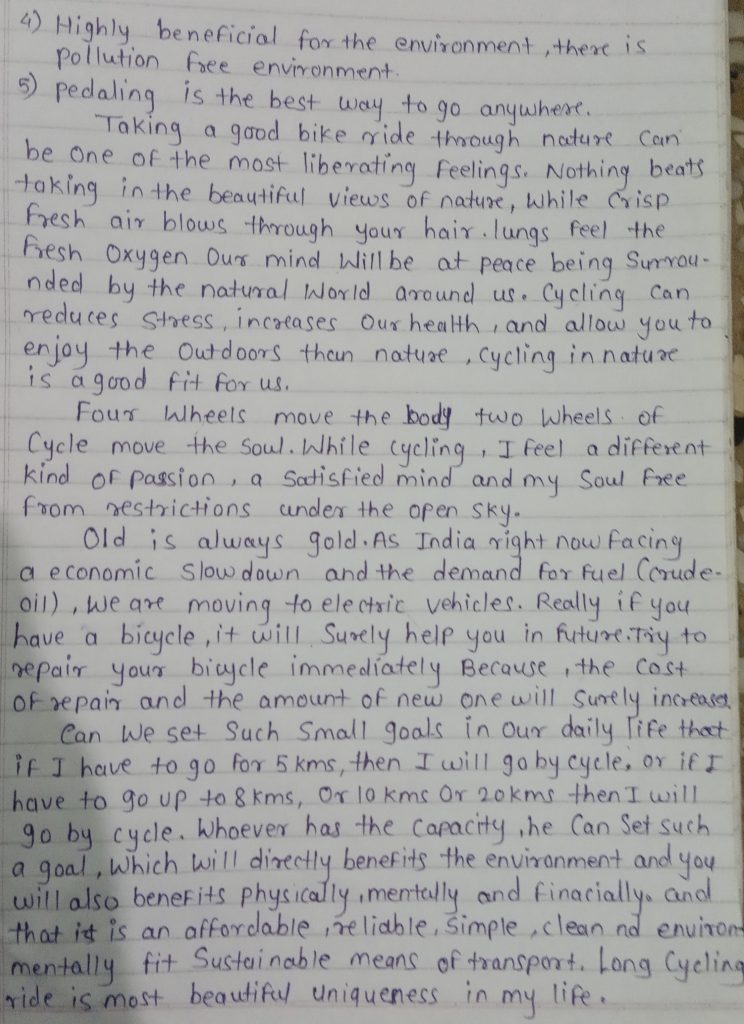 4) Highly beneficial for the environment, there is
pollution free environment.
5) pedaling is the best way to go anywhere.
Taking a good bike ride through nature can
be one of the most liberating feelings. Nothing beats
taking in the beautiful views of nature, while crisp
fresh air blows through your hair. lungs feel the
fresh oxygen Our mind will be at peace being Surrou-
nded by the natural world around us. Cycling can
reduces stress, increases Our health, and allow you to
enjoy the outdoors than nature, Cycling in nature
is a good fit for us.
Four wheels move the body two wheels of
Cycle move the soul. While cycling, I feel a different
kind of passion, a satisfied mind and my Soul free
from restrictions under the open sky.
Old is always gold. As India right now facing
a economic slowdown and the demand for fuel (crude-
oil), we are moving to electric vehicles. Really if you
have a bicycle, it will surely help you in future. Try to
repair your bicycle immediately Because, the cost
of repair and the amount of new one will surely increases
Can we set such small goals in our daily life that
if I have to go for 5 kms, then I will go by cycle, or if I
have to go up to 8 kms, Or 10 kms Or 20 kms then I will
go by cycle. Whoever has the capacity, he can set such
a goal, which will directly benefits the environment and you
will also benefits physically, mentally and finacially. and
that is an affordable, reliable, simple, clean nd environ
mentally fit Sustainable means of transport. Long Cycling
ride is most beautiful uniqueness in my life.